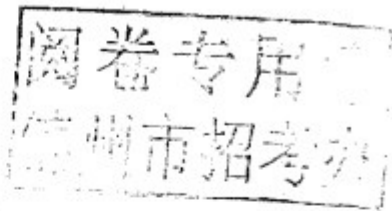 阅卷专用
州市招考办